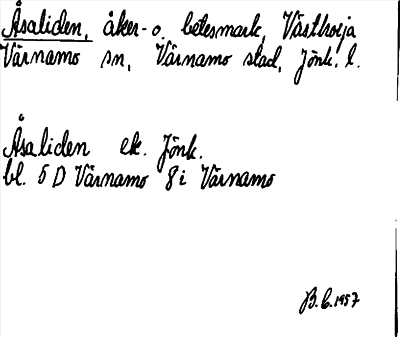 Åsaliden, åker- o. betesmark, Västhorja
Värnamo sn, Värnamo stad, Jönk. l.
Åsaliden ek. Jönk.
bl. 5 D Värnamo 8 i Värnamo
B.C. 1957